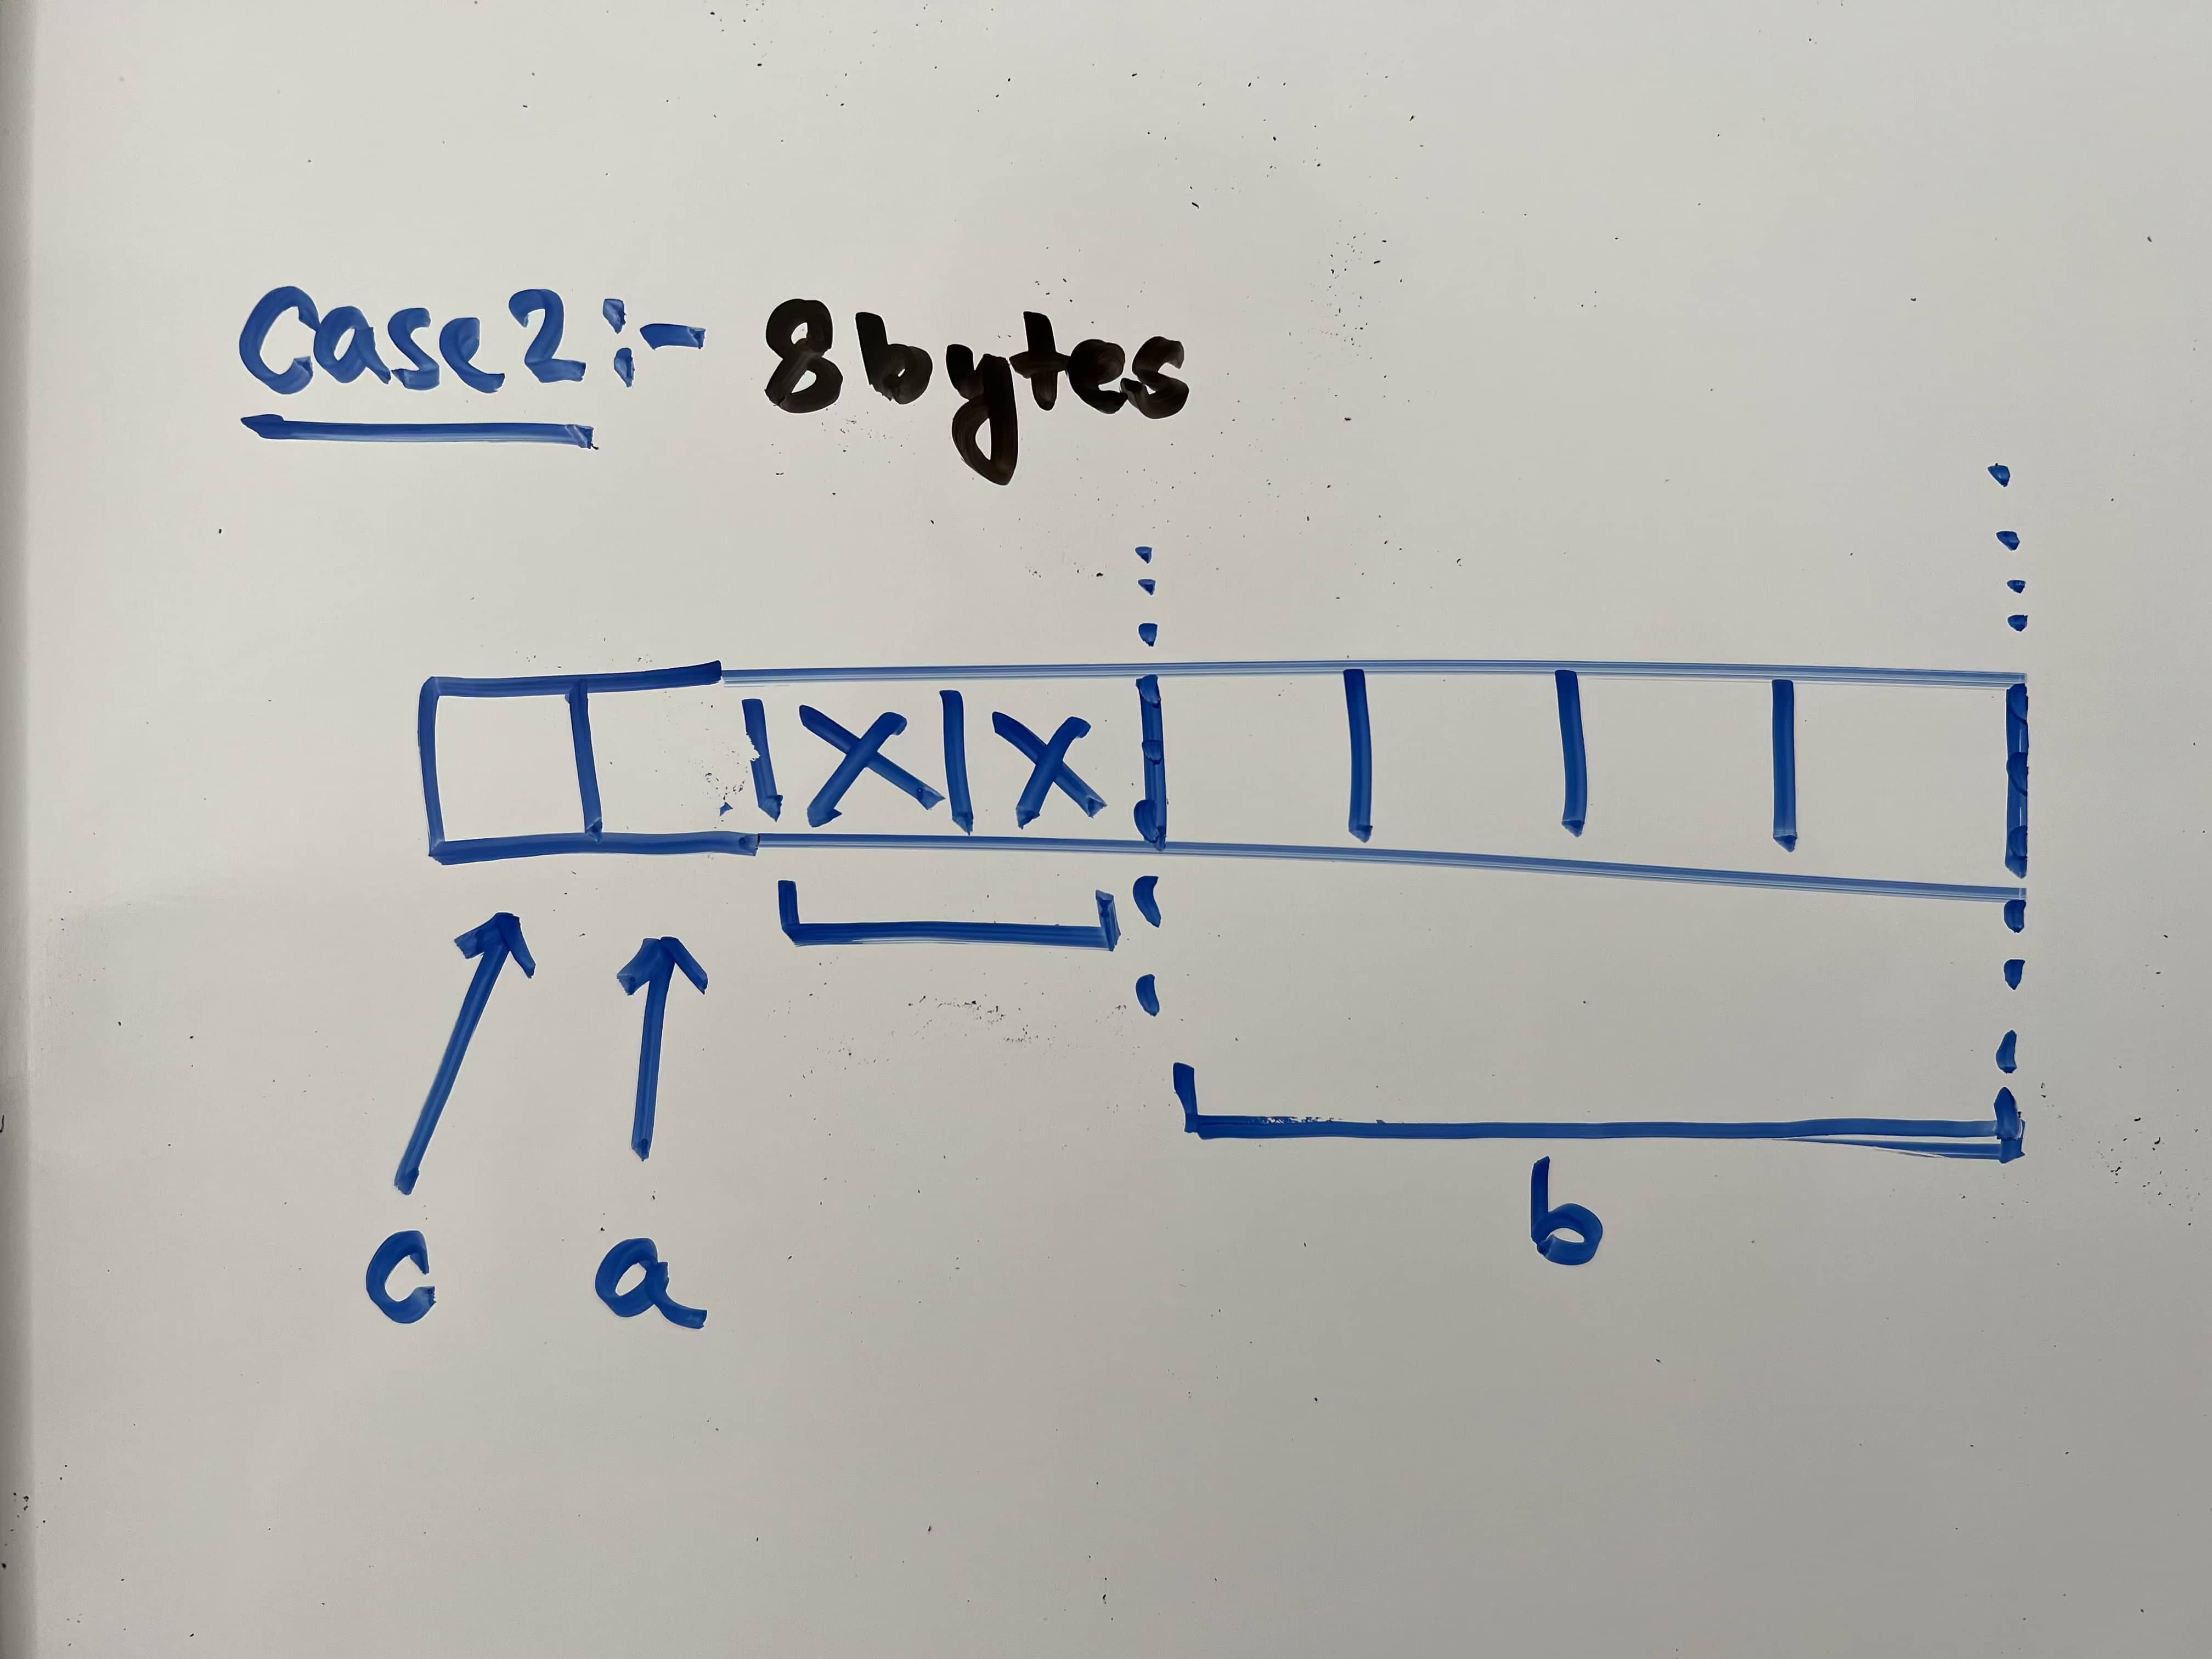 Case 2:- 8bytes
X X
c a b